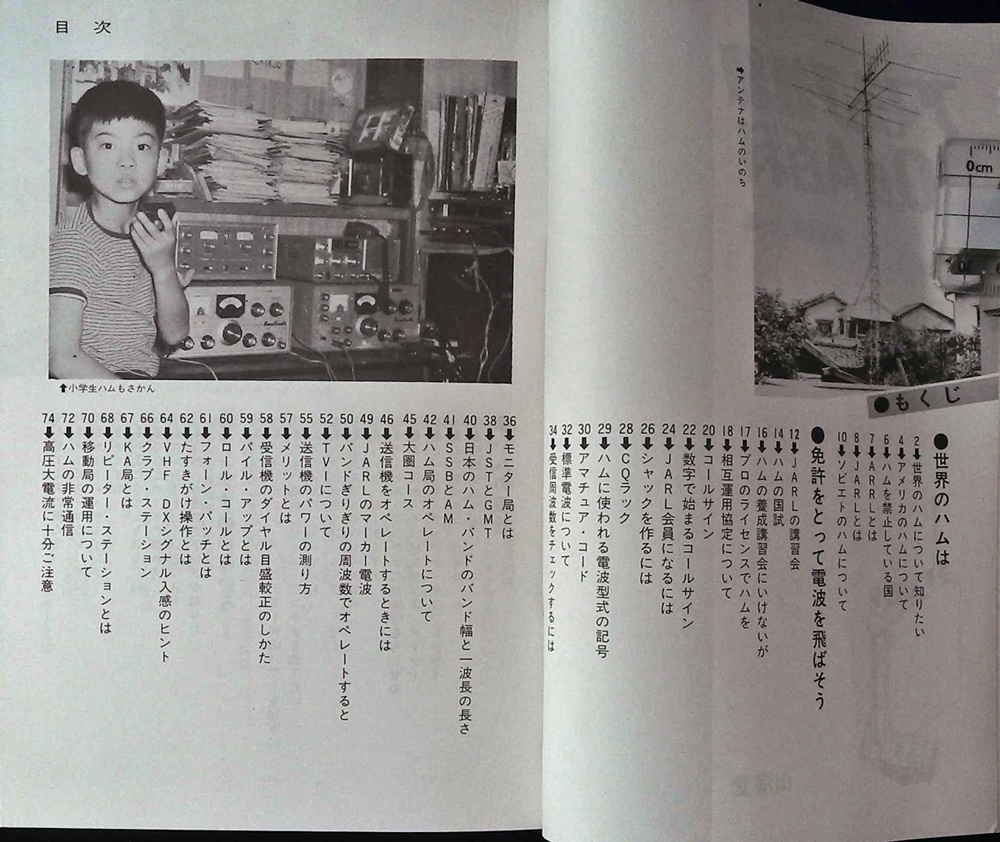 ➡アンテナはハムのいのち
0cm
●もくじ
●世界のハムは
2➡世界のハムについて知りたい
4➡アメリカのハムについて
6➡ハムを禁止している国
7➡ARRLとは
8➡JARLとは
10➡ソビエトのハムについて
●免許をとって電波を飛ばそう
12➡JARLの講習会
14➡ハムの国試
16➡ハムの養成講習会にいけないが
17➡プロのライセンスでハムを
18➡相互運用協定について
20➡コールサイン
22➡数字で始まるコールサイン
24➡JARL会員になるには
26➡シャックを作るには
28➡CQラック
29➡ハムに使われる電波型式の記号
30➡アマチュア・コード
32➡標準電波について
34➡受信周波数をチェックするには
目次
⬆小学生ハムもさかん
36➡モニター局とは
38➡JSTとGMT
40➡日本のハム・バンドのバンド幅と一波長の長さ
41➡SSBとAM
42➡ハム局のオペレートについて
45➡大圏コース
46➡送信機をオペレートするときには
49➡JARLのマーカー電波
50➡バンドぎりぎりの周波数でオペレートすると
52➡TVIについて
55➡送信機のパワーの測り方
57➡メリットとは
58➡受信機のダイヤル目盛較正のしかた
59➡パイル・アップとは
60➡ロール・コールとは
61➡フォーン・パッチとは
62➡たすきがけ操作とは
64➡VHF DXシグナル入感のヒント
66➡クラブ・ステーション
67➡KA局とは
68➡リピーター・ステーションとは
70➡移動局の運用について
72➡ハムの非常通信
74➡高圧大電流に十分ご注意